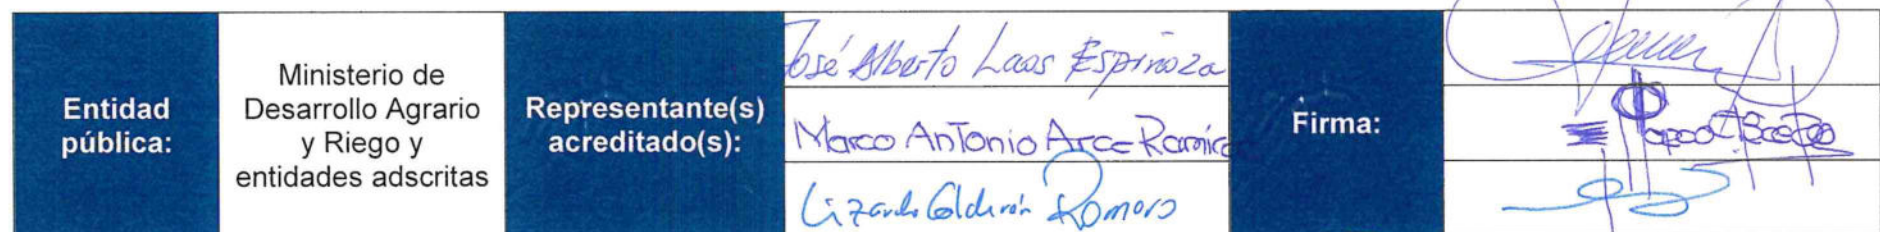 Entidad
pública:
Ministerio de
Desarrollo Agrario
y Riego y
entidades adscritas
Representante(s)
acreditado(s):
José Alberto Laos Espinoza
Marco Antonio Arce Ramírez
Lizardo Calderón Romero
Firma: